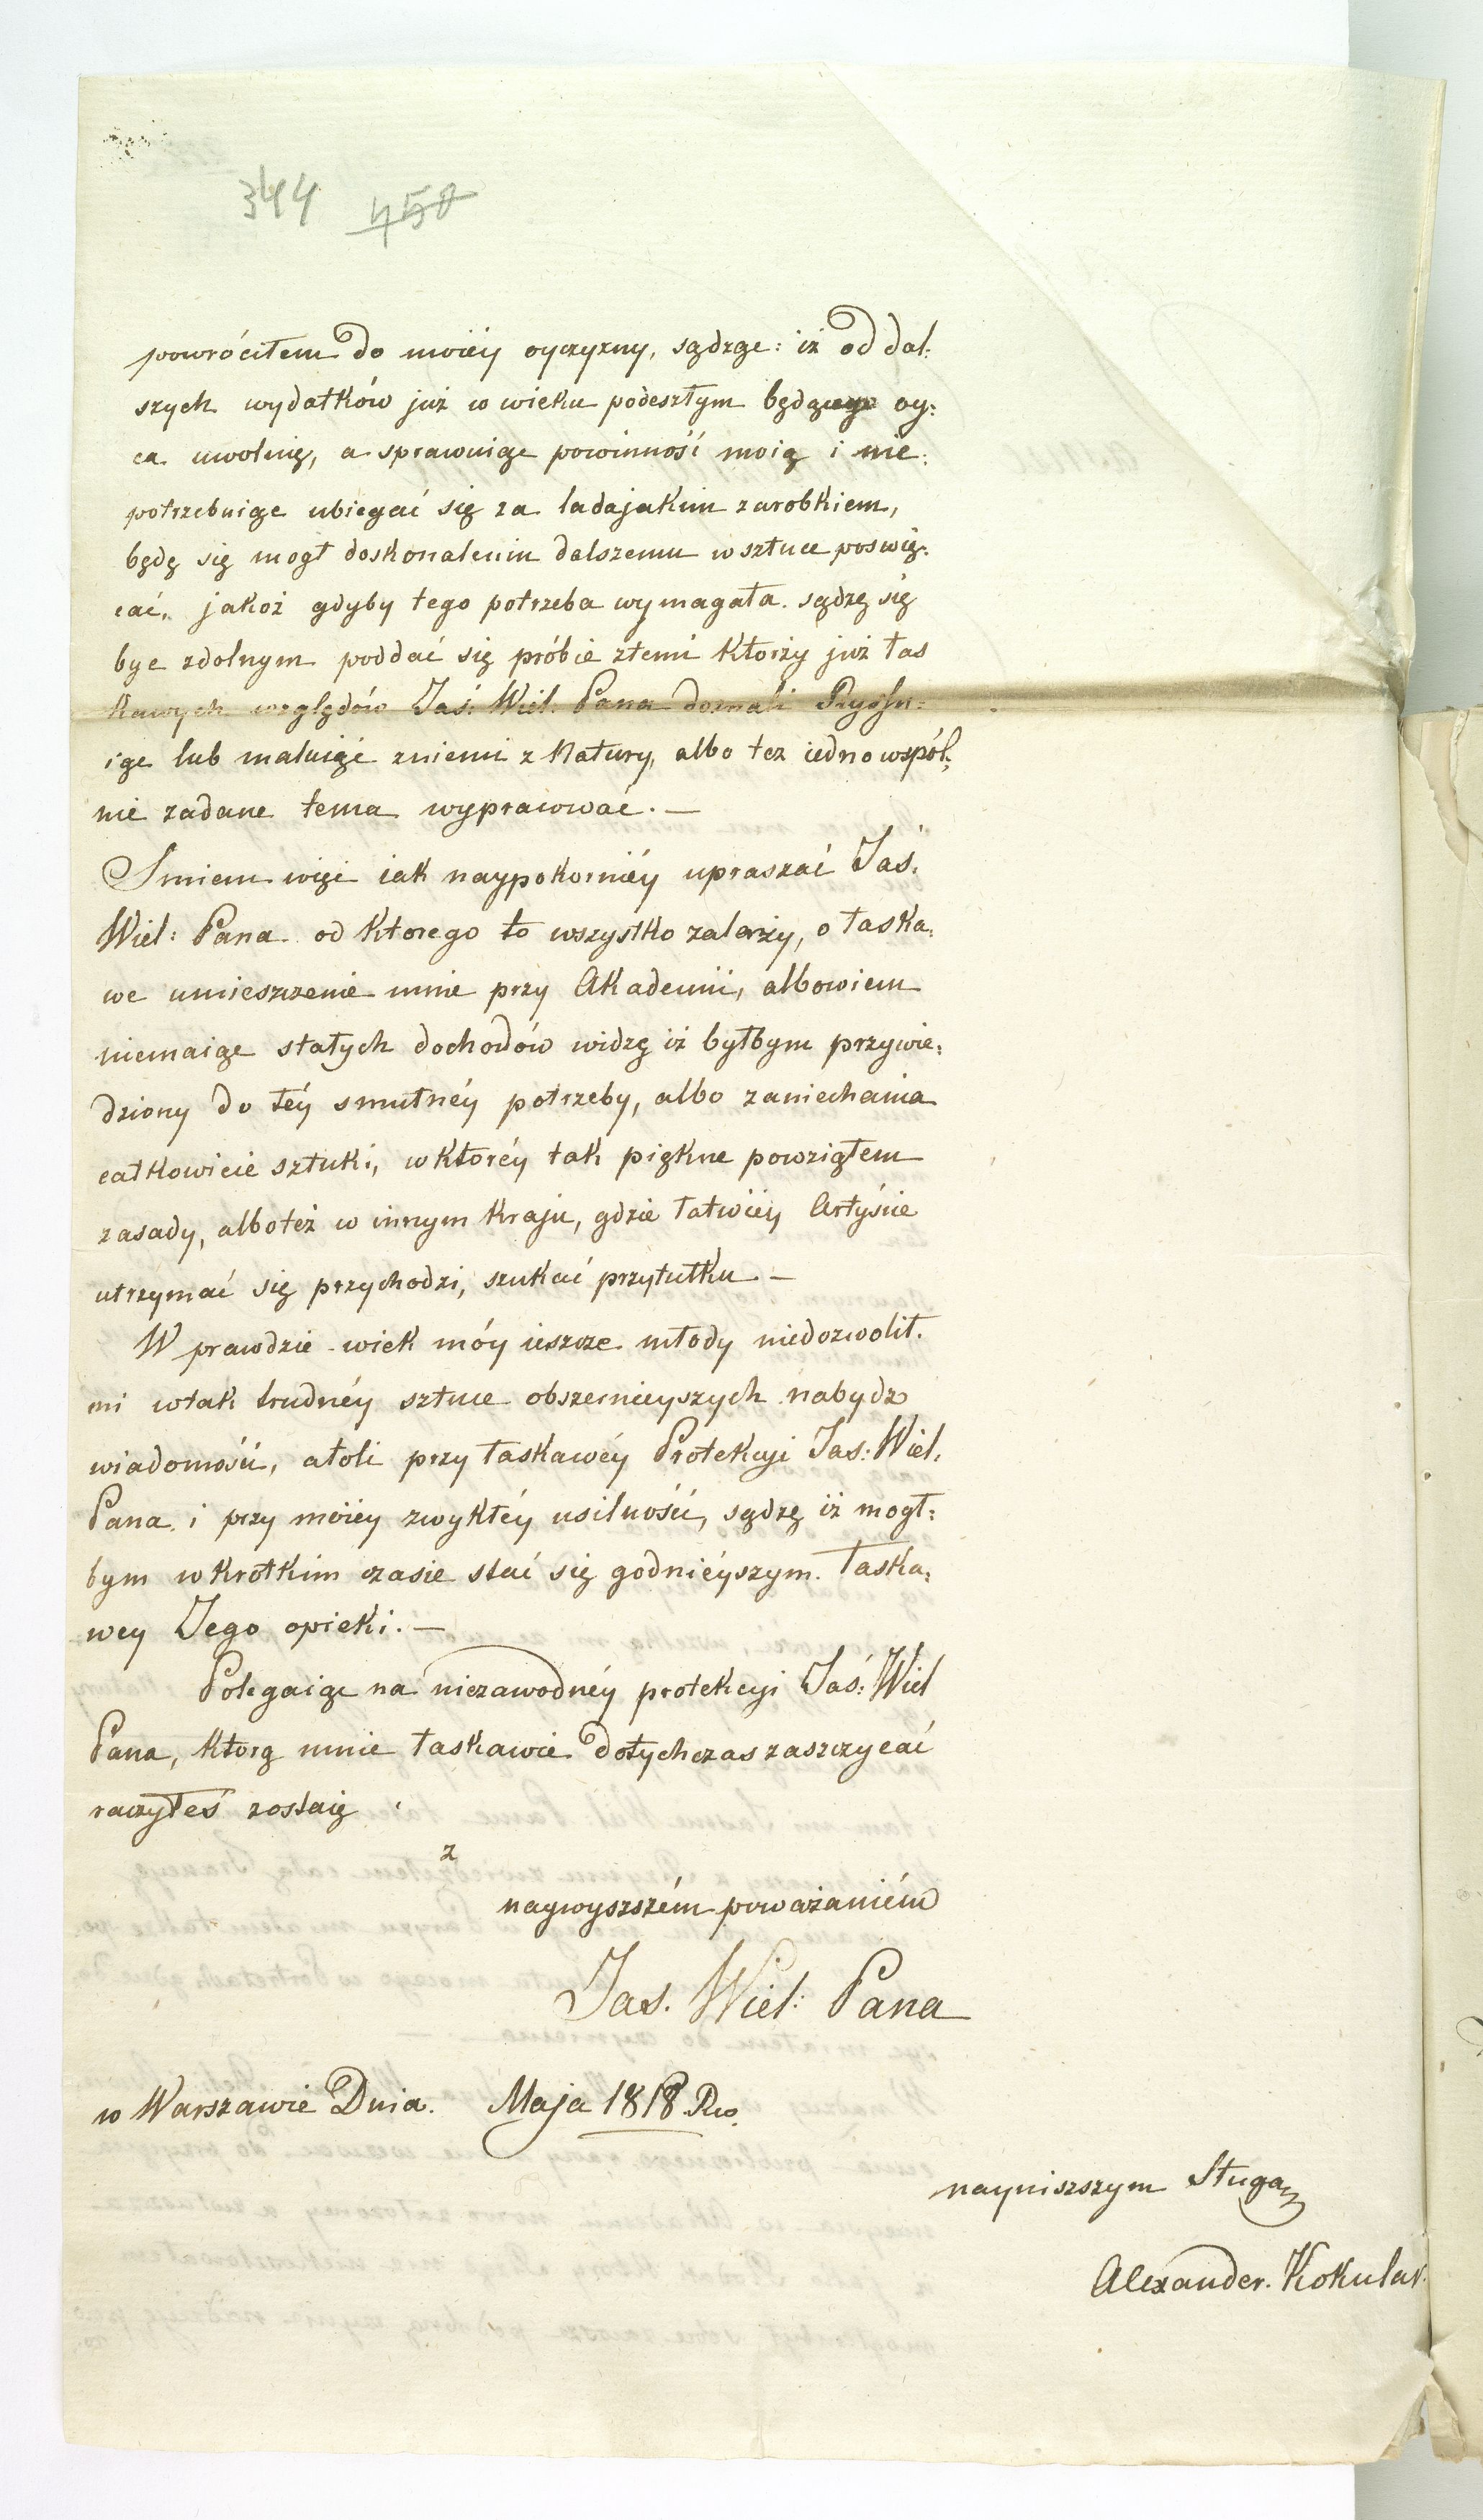 344 458
powróciłem do moiéy oyczyzny, sądząc: iż od dal:
szych wydatków już w wieku podeszłym będącego oy:
ca uwolnię, a sprawuiąc powinność moią i nie:
potrzebuiąc ubiegać się za ladajakim zarobkiem,
będę się mogł doskonaleniu dalszemu w sztuce poswię:
cać, jakoż gdyby tego potrzeba wymagała. sądzę się
bye zdolnym poddać się próbie ztemi którzy już łas
kawych względów Jaś: Wiel: Pana doznali Ryssu:
iąc lub maluiąć zniemi z Natury, albo tez iedno wspól:
nie zadane tema wyprawwać. —
Smiem więc iak naypokorniéy upraszać Jaś:
Wiel: Pana od ktorego to wszystko zależy, o łaska:
we umieszczenie mnie przy Akademii, albowiem
niemaiąc stałych dochodów widzę iż byłbym przywie:
dziony do téy smutnéy potrzeby, albo zaniechania
całkowicie sztuki, w któréy tak piękne powziąłem
zasady, albo też w innym kraju, gdzie łatwiéy Artyście
utrzymać się przychodzi, szukać przytułku —
W prawdzie wiek móy ieszcze młody niedozwolił.
mi wtak trudnéy sztuce obszernieyszych nabydz
wiadomości, atoli przy łaskawéy Protekcyi Jas: Wiel.
Pana i przy moiéy zwykłéy usilności, sądzę iż mogł:
bym w krótkim czasie stać się godniéyszym łaska:
wey Jego opieki. —
Polegaiąc na niezawodnéy protekcyi Jaś: Wiel
Pana, którą mnie łaskawie dotychczas zaszczycać
raczyłeś zostaię
z
naywyszszém poważaniém
Jas. Wiel: Pana
w Warszawie Dnia. Maja 1818 Rw.
nayniszszym Sługą
Alexander. Kokular.